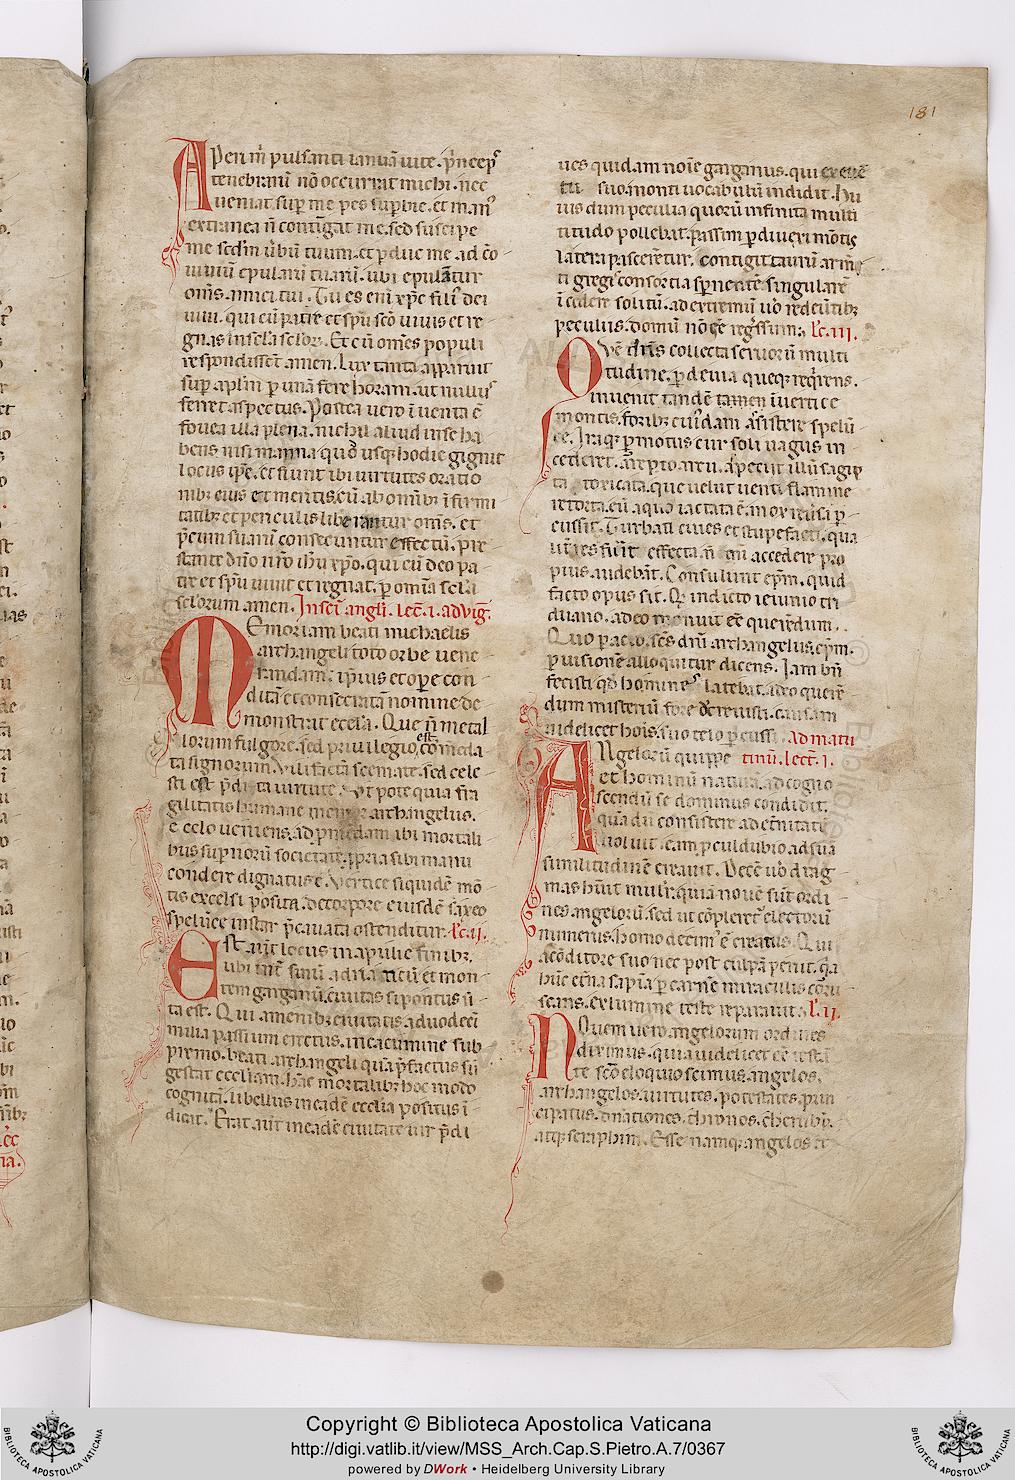 181
Aperi m̄ pulsanti ianuā uite. p̄nceps
tenebrarū nō occurrat michi. nec
ueniat sup̄ me pes sup̄bie. et manꝰ
extranea n̄ contīgat me. sed suscipe
me scd̄m ūbū tuum. et ꝑduc me ad cō
uiuiū epularū tuarū. ubi epulātur
om̄s amici tui. Tu es eni xp̄c filiꝰ dei
uiui. qui cū patre et sp̄u scō uiuis et re
gnas in scl̄a scl̄oꝝ. Et cū om̄es populi
respondissēt amen. Lux tanta apparuit
sup̄ apl̄m ꝑ unā fere horam. ut nullus
ferret aspectus. Postea uero īuenta ē
fouea illa plena. nichil aliud in se ha
bens nisi manna quod usq; hodie gignit
locus ip̄e. et fiunt ibi uirtutes oratio
nibꝰ eius et meritis. cū ab om̄ibꝰ īfirmi
tatibꝰ et periculis liberantur om̄s. et
p̄cum suarū consecuntur effectū. pre
stante dn̄o nr̄o ih̄u xp̄o. qui cū deo pa
tre et sp̄u uiuit et regnat. ꝑ om̄ia scl̄a
scl̄orum amen. In sc̄i angl̄i. lec̄. i. ad viḡ.
Memoriam beati michaelis
archangeli toto orbe uene
randam. ipsius et opere con
ditā et consecratā nomine de
monstrat eccl̄a. Que n̄ metal
lorum fulgore. sed priuilegio est cōmēda
ta signorum. Vili facta scemate. sed cele
sti est p̄dita uirtute. Vt pote quia fra
gilitatis humane memor archangelus.
e celo ueniens. ad p̄mēdam ibi mortali
bus sup̄norū societatē. ꝓpria sibi manu
condere dignatus ē. Vertice siquidē mō
tis excelsi posita. de corpore eiusdē saxeo
spelunce instar p̄cauata ostenditur. lc̄. ii.
Est aut̄ locus in apulie finibꝰ.
ubi int̄ sinū adriaticū et mon
tem garganū. ciuitas sipontus si
ta est. Qui a menibꝰ ciuitatis. ad uodeci
milia passium erectus. in cacumine sub
premo. beati archangeli quā p̄factus sū
gestat eccl̄iam. hāc mortalibꝰ hoc modo
cognitā. libellus in eadē eccl̄ia positus ī
dicat. Erat aut̄ in eadē ciuitate uir p̄di
ues quidam noīe garganus. qui ex euē
tu suo monti uocabulū indidit. Hu
ius dum peculia quorū infinita multi
titudo pollebat. passim ꝑ diuersi mōtis
latera pasceretur. contigit taurū armē
ti gregꝭ consortia sp̄nentē. singularē
īcedere solitū. ad extremū uo redeūtibꝰ
peculiis. domū nō ēē reg̃ssum; lc̄. iii.
Quē dn̄s collecta seruorū multi
tudine. ꝑ deuia queq; req̃rens.
inuenit tandē tamen ī uertice
montis. foribꝰ cuiꝰdam assistere spelū
ce. Iraq; ꝑmotus cur soli uagus in
cederet. arrepto arcu. appeciit illū sagip
ta toxicata. que uelut uenti flamine
retorta. eū a quo iactata ē. mox reuſa ꝑ
cussit. Turbati ciues et stupefacti. qua
lit̄ res fuit effecta. n̄ eni accedere pro
pius audebāt. Consulunt ep̄m. quid
facto opus sit. Qui indicto ieiunio tri
duano. a deo monuit eē querēdum.
Quo ꝑacto. scs̄ dn̄i archangelus. ep̄m
ꝑ uisionē alloquitur dicens. Iam bn̄
fecisti qd̄ homines latebat. a deo querē
dum misteriū fore decreuisti. causam
uidelicet hoīs. suo telo ꝑcussi. ad matu
tinū. lect̄. i.
Angelorū quippe
et hominū naturā. ad cogno
scendū se dominus condidit.
quā dū consistere ad et̄nitatē
uoluit. eam ꝑculdubio ad suā
similitudinē creauit. Decē uo drag
mas habuit mulꝰ. quia nouē sūt ordi
nes angelorū. sed ut cōpleret̄ electorū
numerus. homo decimꝰ ē creatus. Qui
a cōditore suo nec post culpā perijt. qa
hūc et̄na sapīa ꝑ carnē miraculis coru
scans. ex lumine teste reparauit. lc̄. ii.
Nouem uero angelorum ordines
diximus. quia uidelicet eē testā
te sc̄o eloquio scimus. angelos.
archangelos. uirtutes. potestates. prin
cipatus. dn̄ationes. thronos. cherubyn.
atq; seraphim. Esse namq; angelos et
Copyright © Biblioteca Apostolica Vaticana
http://digi.vatlib.it/view/MSS_Arch.Cap.S.Pietro.A.7/0367
powered by DWork • Heidelberg University Library